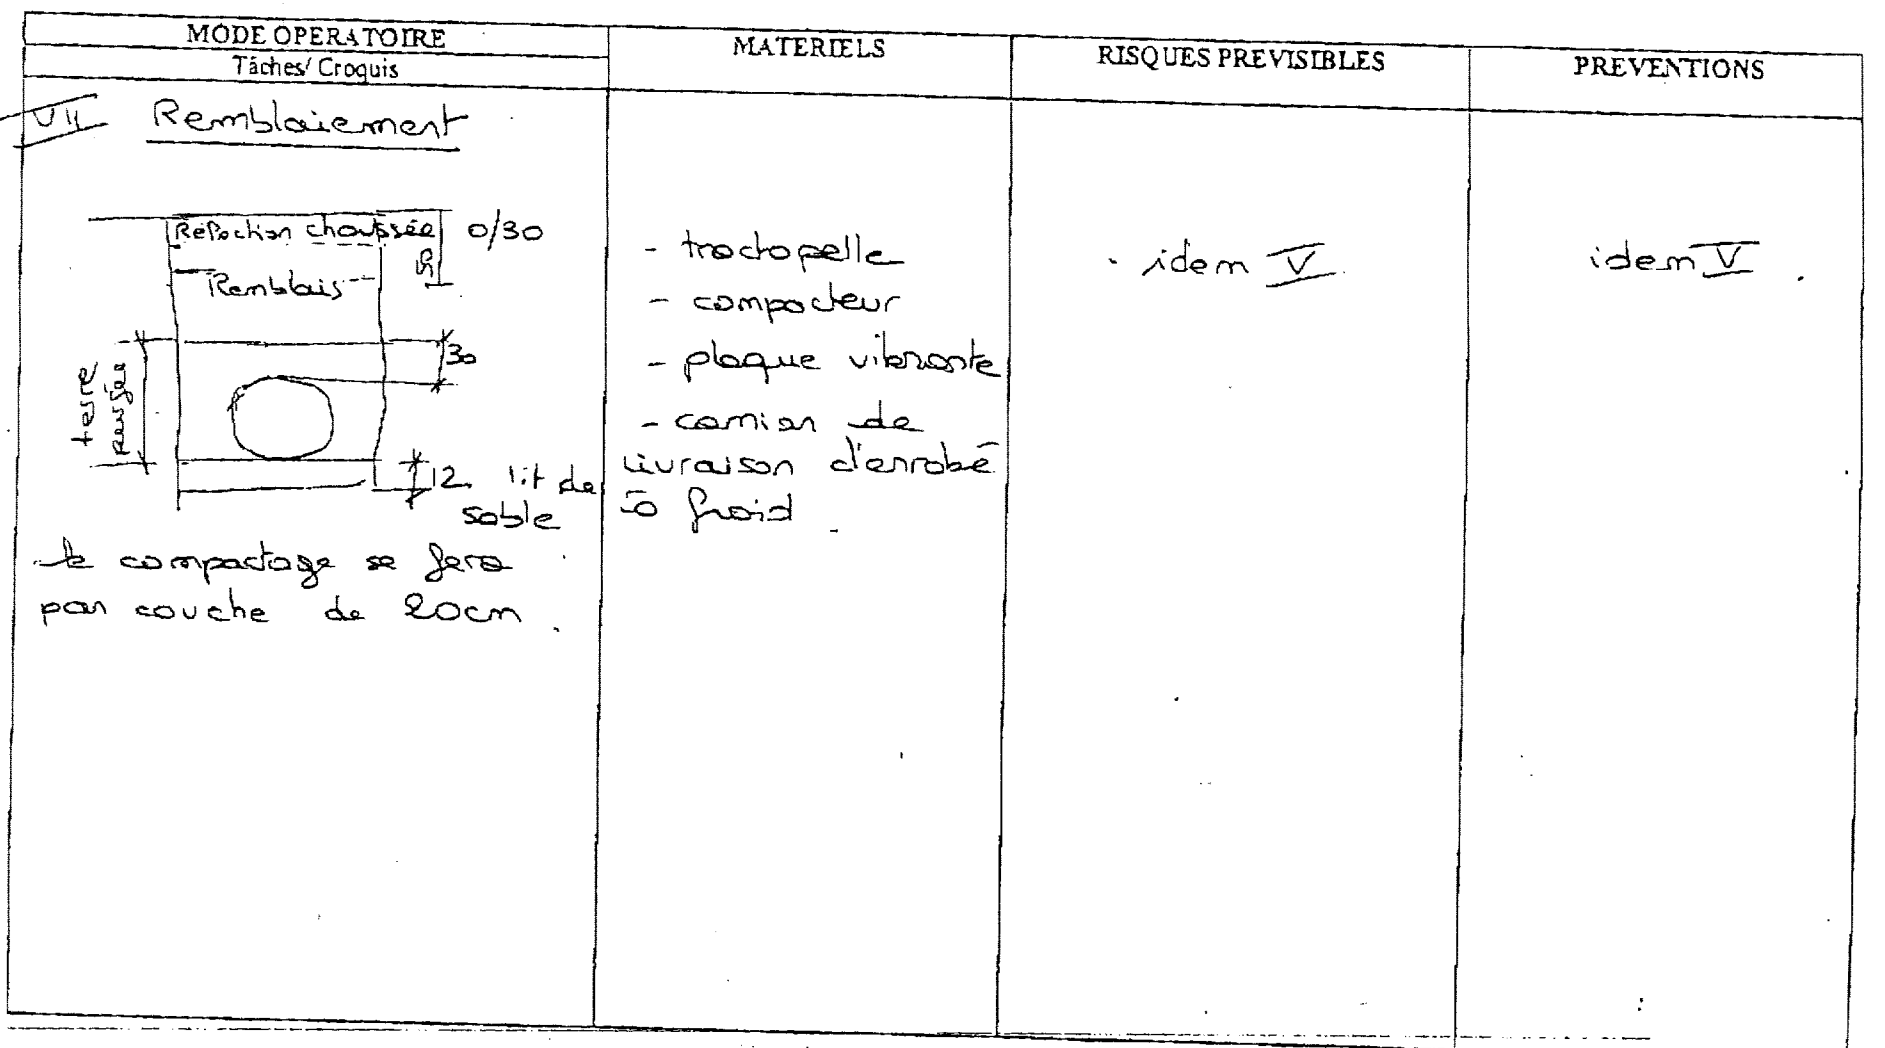 MODE OPERATOIRE
Tâches/ Croquis
MATERIELS
RISQUES PREVISIBLES
PREVENTIONS
VII Remblaiement
Réfection chaussée 0/30
Remblais
30
terre
12 lit de
sable
le compactage se fera
par couche de 20cm.
- tractopelle
- compacteur
- plaque vibrante
- camion de
livraison d'enrobé
à froid.
- idem V.
idem V.